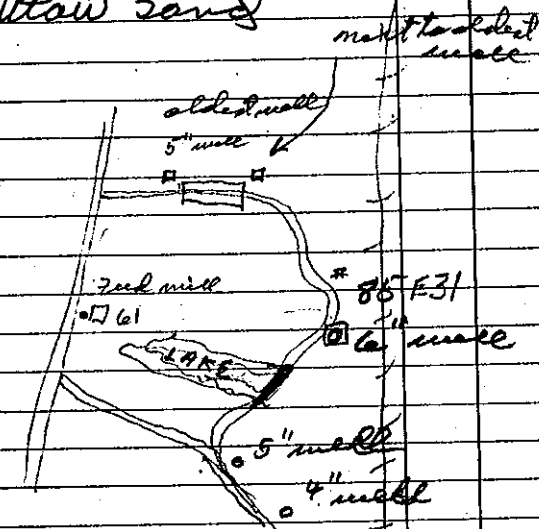 utaw Sand
next to oldest
well
oldest well
5" well
* 85 F31
Feed mill
61
6" well
LAKE
5" well
4" well